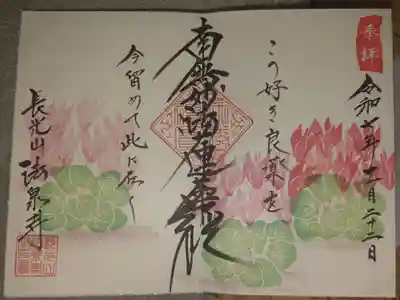 奉拝
令和七年十一月二十二日
この好き良薬を
南無妙法蓮華経
今留めて此に在く
長光山
法泉寺